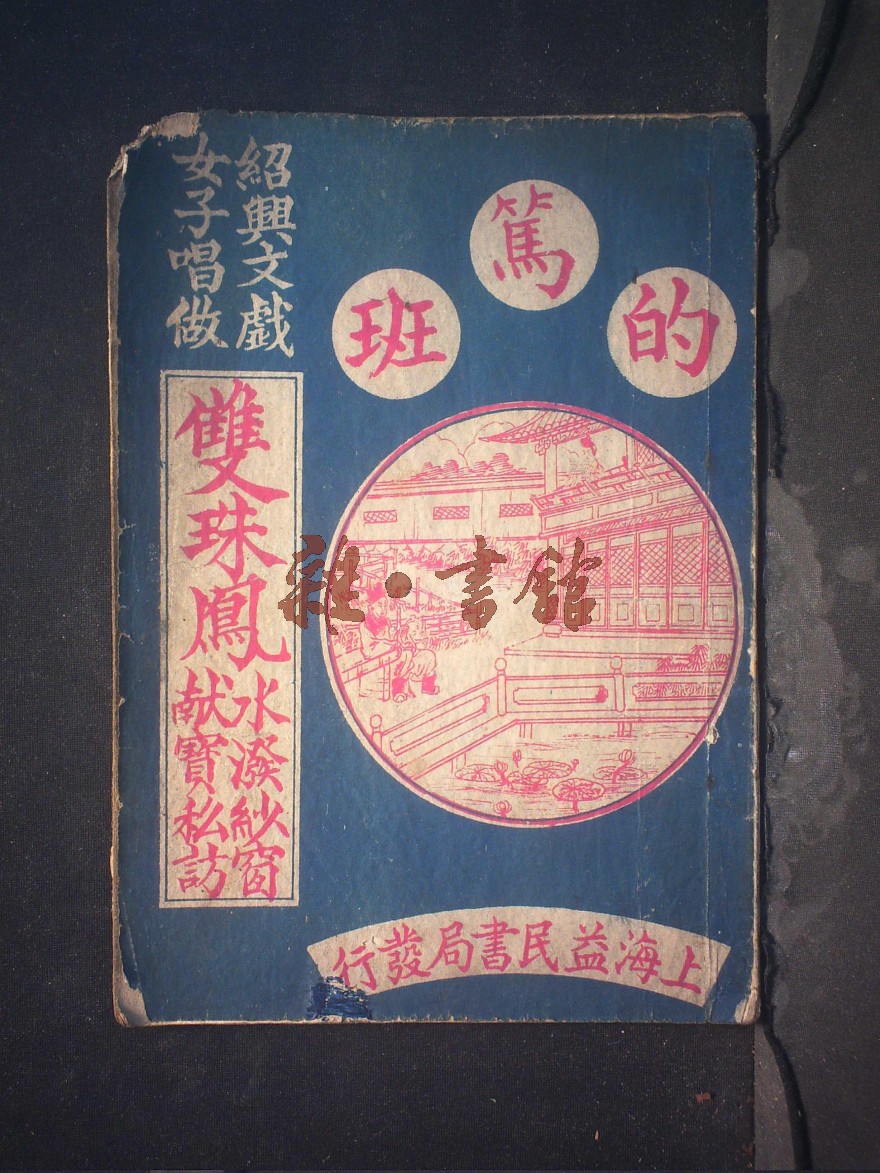 的篤班
紹興文戲
女子唱做
雙珠鳳
水潑紗窗
献寶私訪
上海益民書局發行
雜·書館